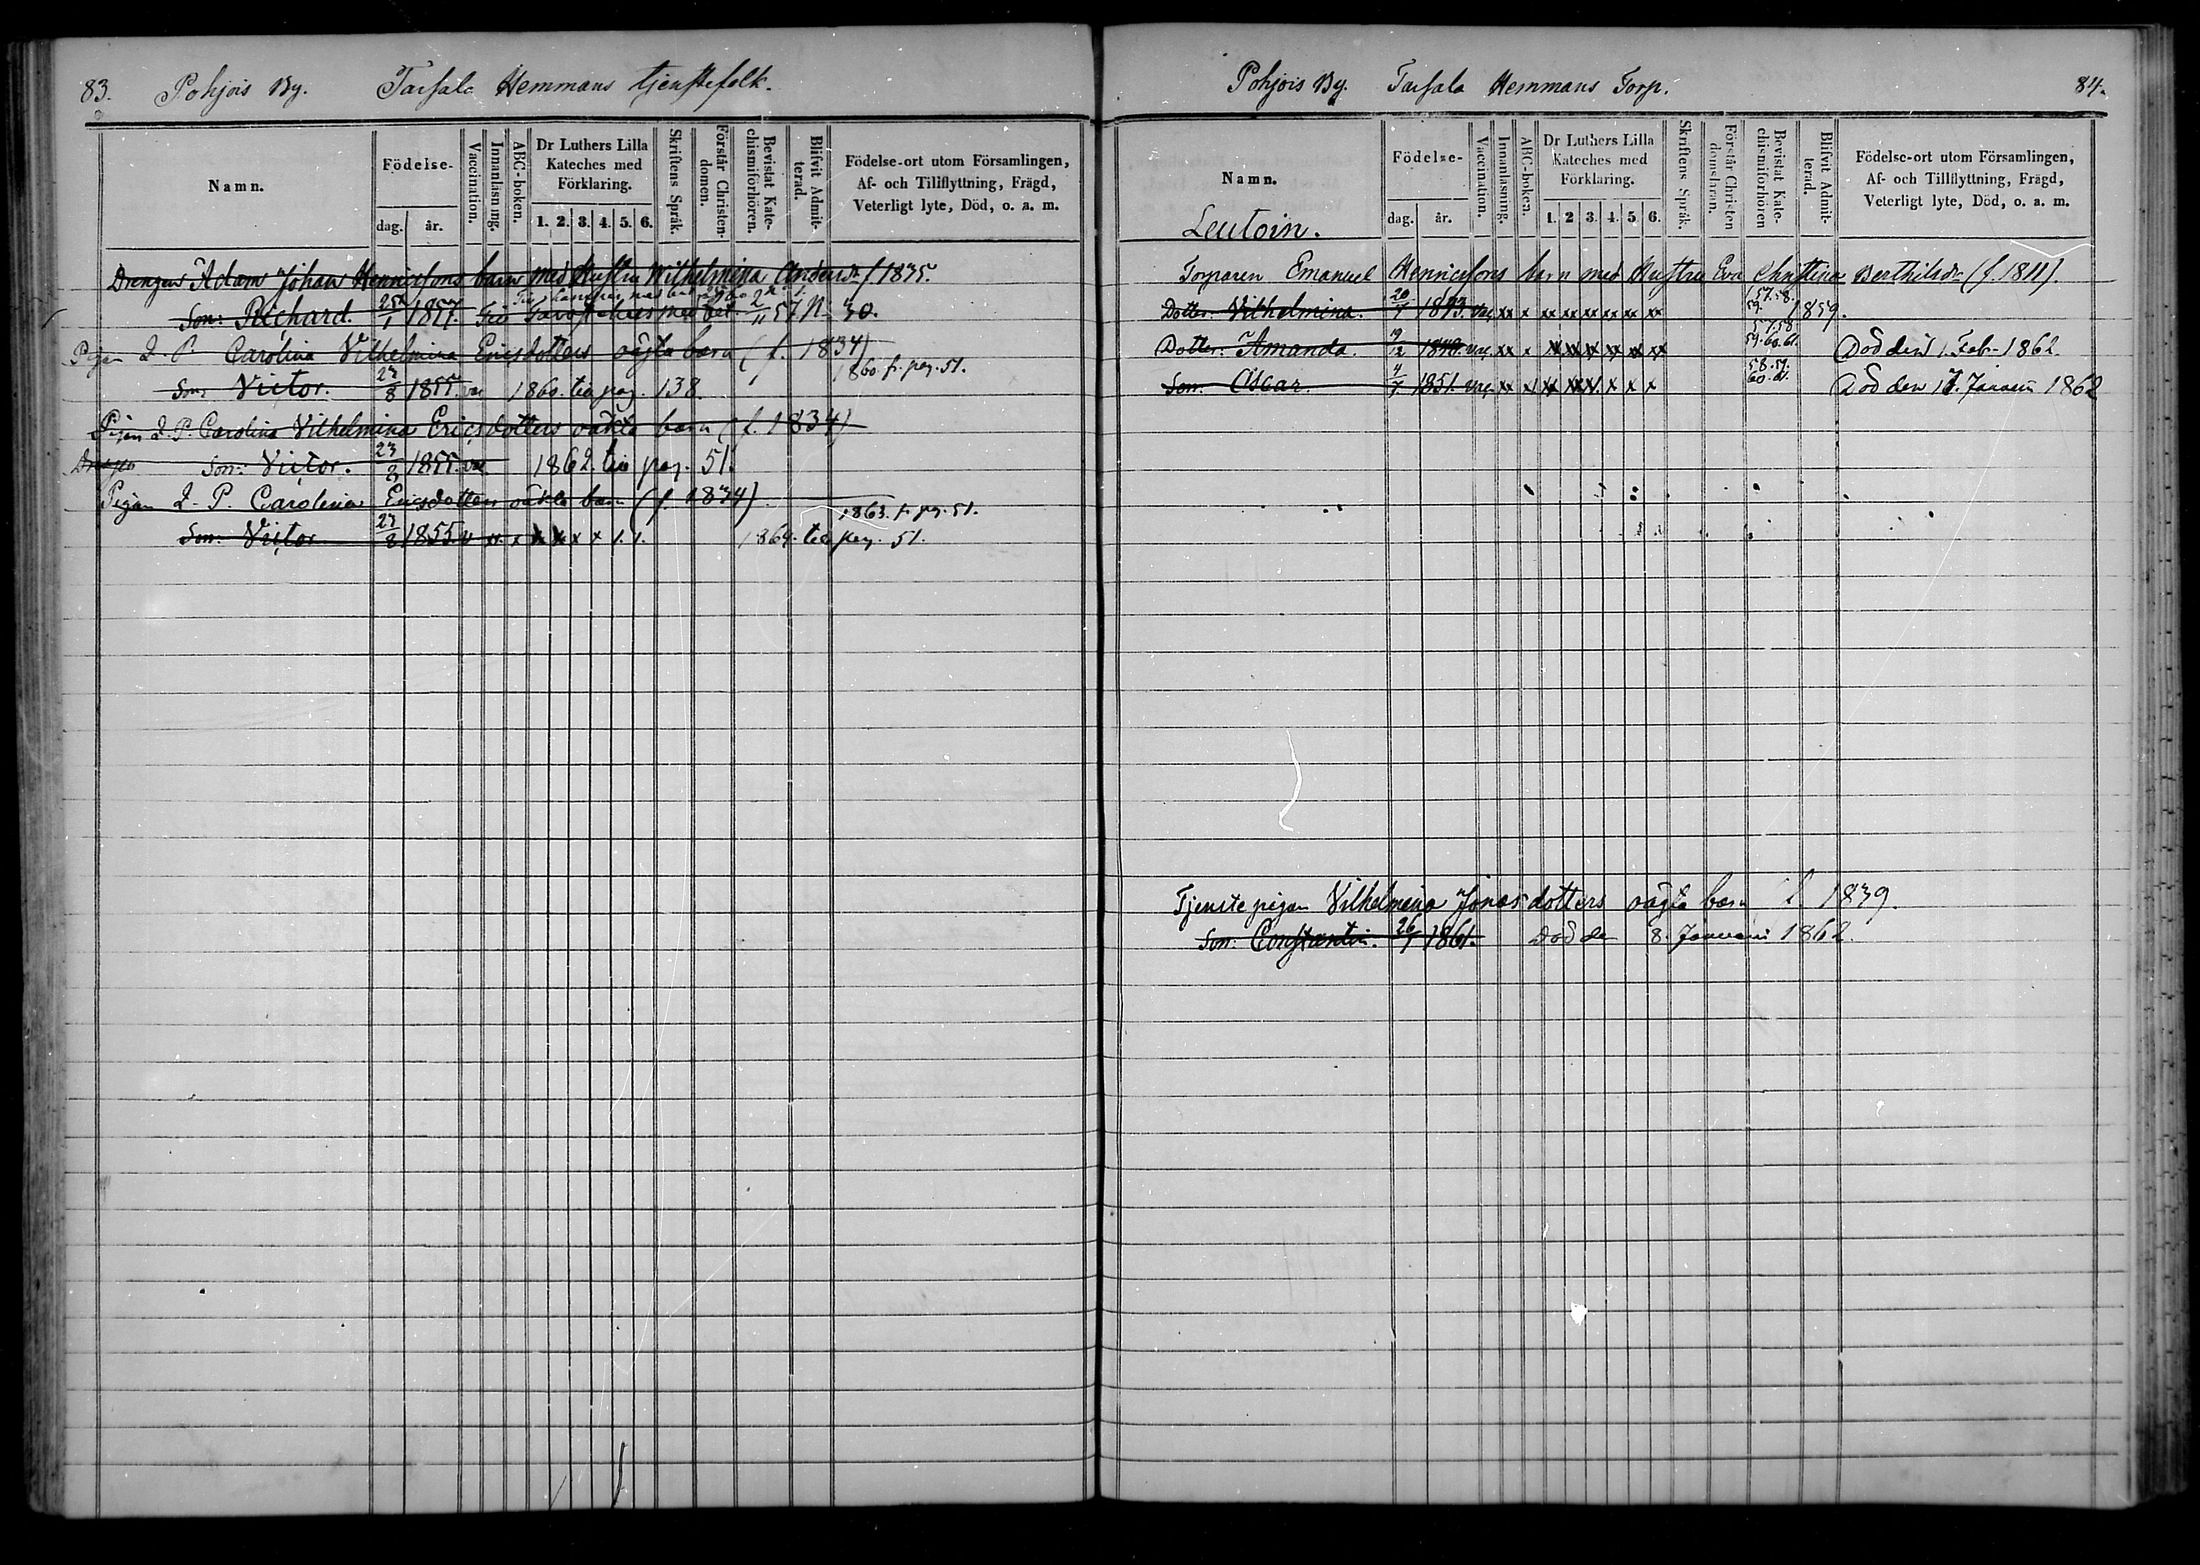 83. Pohjois By. Tarsala Hemmans tjenstefolk.
Namn.
Födelse-
dag. år.
Vaccination.
Innanläsning.
ABC-boken.
Dr Luthers Lilla
Kateches med
Förklaring.
1. 2. 3. 4. 5. 6.
Skriftens Språk.
Förstår Christen-
domen.
Bevistat Kate-
chismiförhören.
Blifvit Admit-
terad.
Födelse-ort utom Församlingen,
Af- och Tillflyttning, Frägd,
Veterligt lyte, Död, o. a. m.
Drengens Adam Johan Henricsons barn med Hustru Wilhelmina Andersdr f 1835.
Son: Richard. 25/1 1857. 2/11 57 N. 30.
Pigan I. P. Carolina Vilhelmina Ericsdotters oägta barn (f. 1834)
1860. fr. pag. 51.
Son: Victor. 23/8 1855. vac 1860. till pag. 138.
Pigan I. P. Carolina Vilhelmina Ericsdotters oäkta barn (f. 1834)
Son: Victor. 23/8 1855. vac 1862. till pag. 51.
Pigan I. P. Carolina Ericsdotters oäkta barn (f. 1834).
1863. fr. pag. 51.
Son: Victor 23/8 1855. v xx x x x x x 1. 1. 1864. till pag. 51.
Pohjois By. Tarsala Hemmans Torp. 84.
Namn.
Födelse-
dag. år.
Vaccination.
Innanläsning.
ABC-boken.
Dr Luthers Lilla
Kateches med
Förklaring.
1. 2 3. 4. 5. 6.
Skriftens Språk.
Förstår Christen
domslaran.
Bevistat Kate-
chismiförhören
Blifvit Admit-
terad.
Födelse-ort utom Församlingen,
Af- och Tillflyttning, Frägd,
Veterligt lyte, Död, o. a. m.
Leutoin.
Torparen Emanuel Henricsons barn med Hustru Eva Christina Berthilsdr (f. 1811).
57. 58.
Dotter: Vilhelmina. 1843. vac xx x xx xx xx xx xx xx 59. 1859.
57. 58.
Dotter: Amanda. 19/12 1848. vac xx x xx xx xx xx xx xx 59. 60. 61. Död den 1. Feb. 1862.
58. 59.
Son: Oscar. 4/7 1851. vac xx x xx xx xx x x x 60. 61. Död den 17. Januari 1862
Tjenstepigan Vilhelmina Jonasdotters oägta barn f 1839.
Son: Constantin. 26/1 1861. Död de 8. Januari 1862.